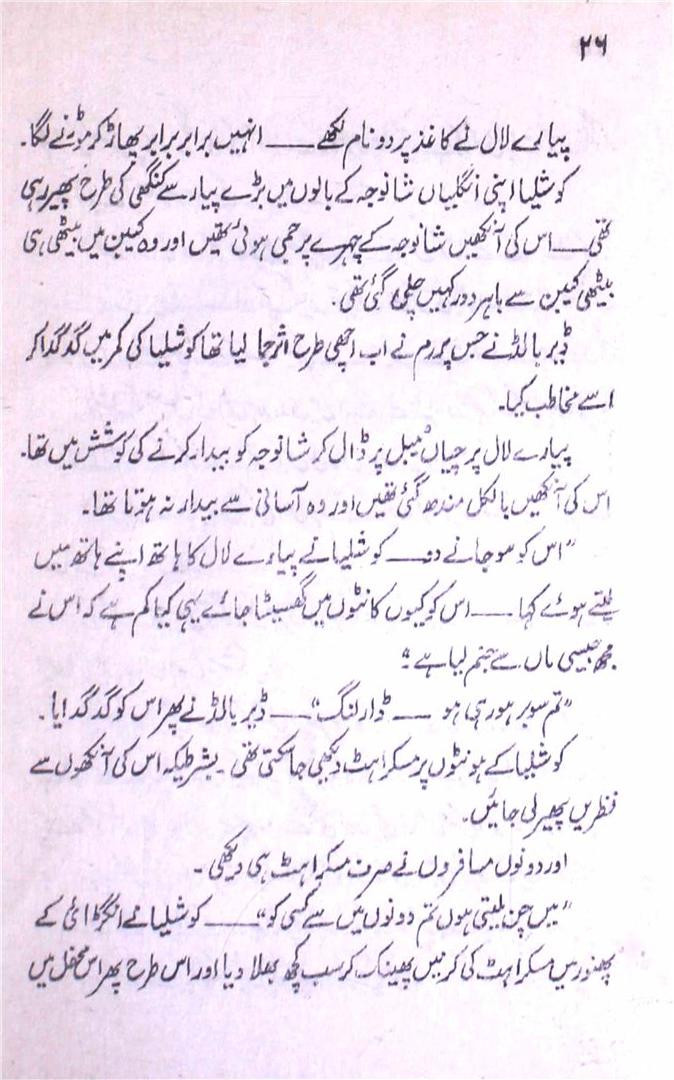 ۲۶
پیارے لال نے کاغذ پر دو نام لکھے ـــــ انہیں برابر برابر پھاڑ کر موڑنے لگا۔
کوشلیا اپنی انگلیاں شانوجہ کے بالوں میں بڑے پیار سے کنگھی کی طرح پھیر رہی
تھی ـــــ اس کی آنکھیں شانوجہ کے چہرے پر جمی ہوئی تھیں اور وہ کیبن میں بیٹھی ہی
بیٹھی کیبن سے باہر دور کہیں چلی گئی تھی۔
ڈیر بالڈ نے جس پر رم نے اب اچھی طرح اثر جما لیا تھا کوشلیا کی کمر میں گدگدا کر
اسے مخاطب کیا۔
پیارے لال پرچیاں ٹیبل پر ڈال کر شانوجہ کو بیدار کرنے کی کوشش میں تھا۔
اس کی آنکھیں بالکل مندھ گئی تھیں اور وہ آسانی سے بیدار نہ ہوتا تھا۔
”اس کو سو جانے دو ـــــ کوشلیا نے پیارے لال کا ہاتھ اپنے ہاتھ میں
لیتے ہوئے کہا ـــــ اس کو کیوں کانٹوں میں گھسیٹا جائے یہی کیا کم ہے کہ اس نے
مجھ جیسی ماں سے جنم لیا ہے“
”تم سوبر ہو رہی ہو ـــــ ڈارلنگ“ ـــــ ڈیر بالڈ نے پھر اس کو گدگدایا۔
کوشلیا کے ہونٹوں پر مسکراہٹ دیکھی جا سکتی تھی۔ بشرطیکہ اس کی آنکھوں سے
نظریں پھیر لی جائیں۔
اور دونوں مسافروں نے صرف مسکراہٹ ہی دیکھی۔
”میں چن لیتی ہوں تم دونوں میں سے کسی کو“ ـــــ کوشلیا نے انگڑائی کے
بھنور میں مسکراہٹ کی کرنیں پھینک کر سب کچھ بھلا دیا اور اس طرح پھر اس محفل میں